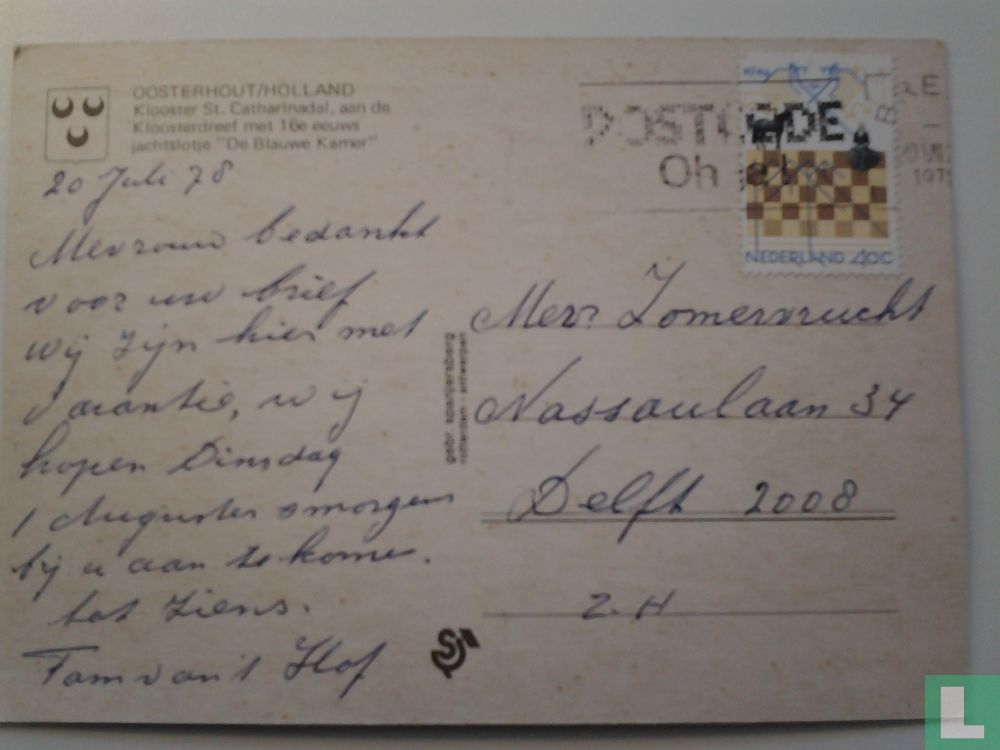 OOSTERHOUT/HOLLAND
Klooster St. Catharinadal, aan de
Kloosterdreef met 16e eeuws
jachtslotje "De Blauwe Kamer"
20 Juli 78
Mevrouw bedankt
voor uw brief
wij zijn hier met
vacantie, wij
hopen Dinsdag
1 Augustus smorgens
bij u aan te komen.
tot ziens.
Fam van 't Hof
gebr. spanjersberg
rotterdam - antwerpen
POSTCODE
Oh ja!
1978
NEDERLAND 40C
Mevr Zomervrucht
Nassaulaan 34
Delft 2008
Z.H
S
L